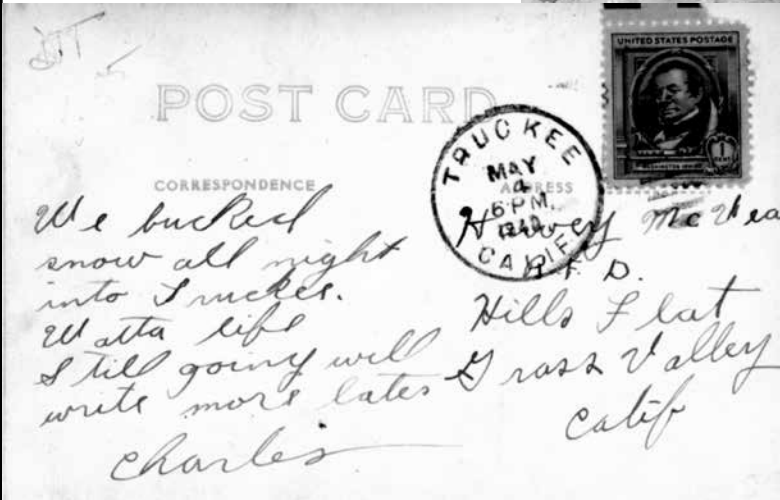 POST CARD
UNITED STATES POSTAGE
WASHINGTON IRVING
1
CENT
TRUCKEE
MAY
4
6 PM.
1940
CALIF.
CORRESPONDENCE
ADDRESS
We bucked
snow all night
into Truckee.
Watta life
Still going will
write more later
Charles
Harvey
R. F. D.
Hills Flat
Grass Valley
Calif